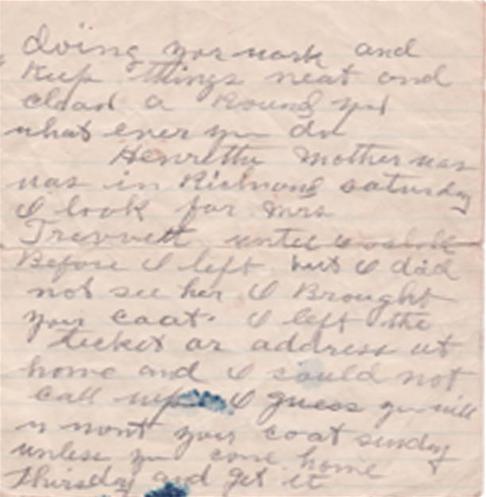 doing yor work and
Keep things neat and
clean a Round you
what ever you do
Henrietta mother was
was in Richmond saturday
I look for Mrs
Trevvett until
Before I left but I did
not see her I Brought
your coat. I left the
ticket or address at
home and I could not
call up I guess you will
n wont your coat sunday
unless you come home
thirsday and get it